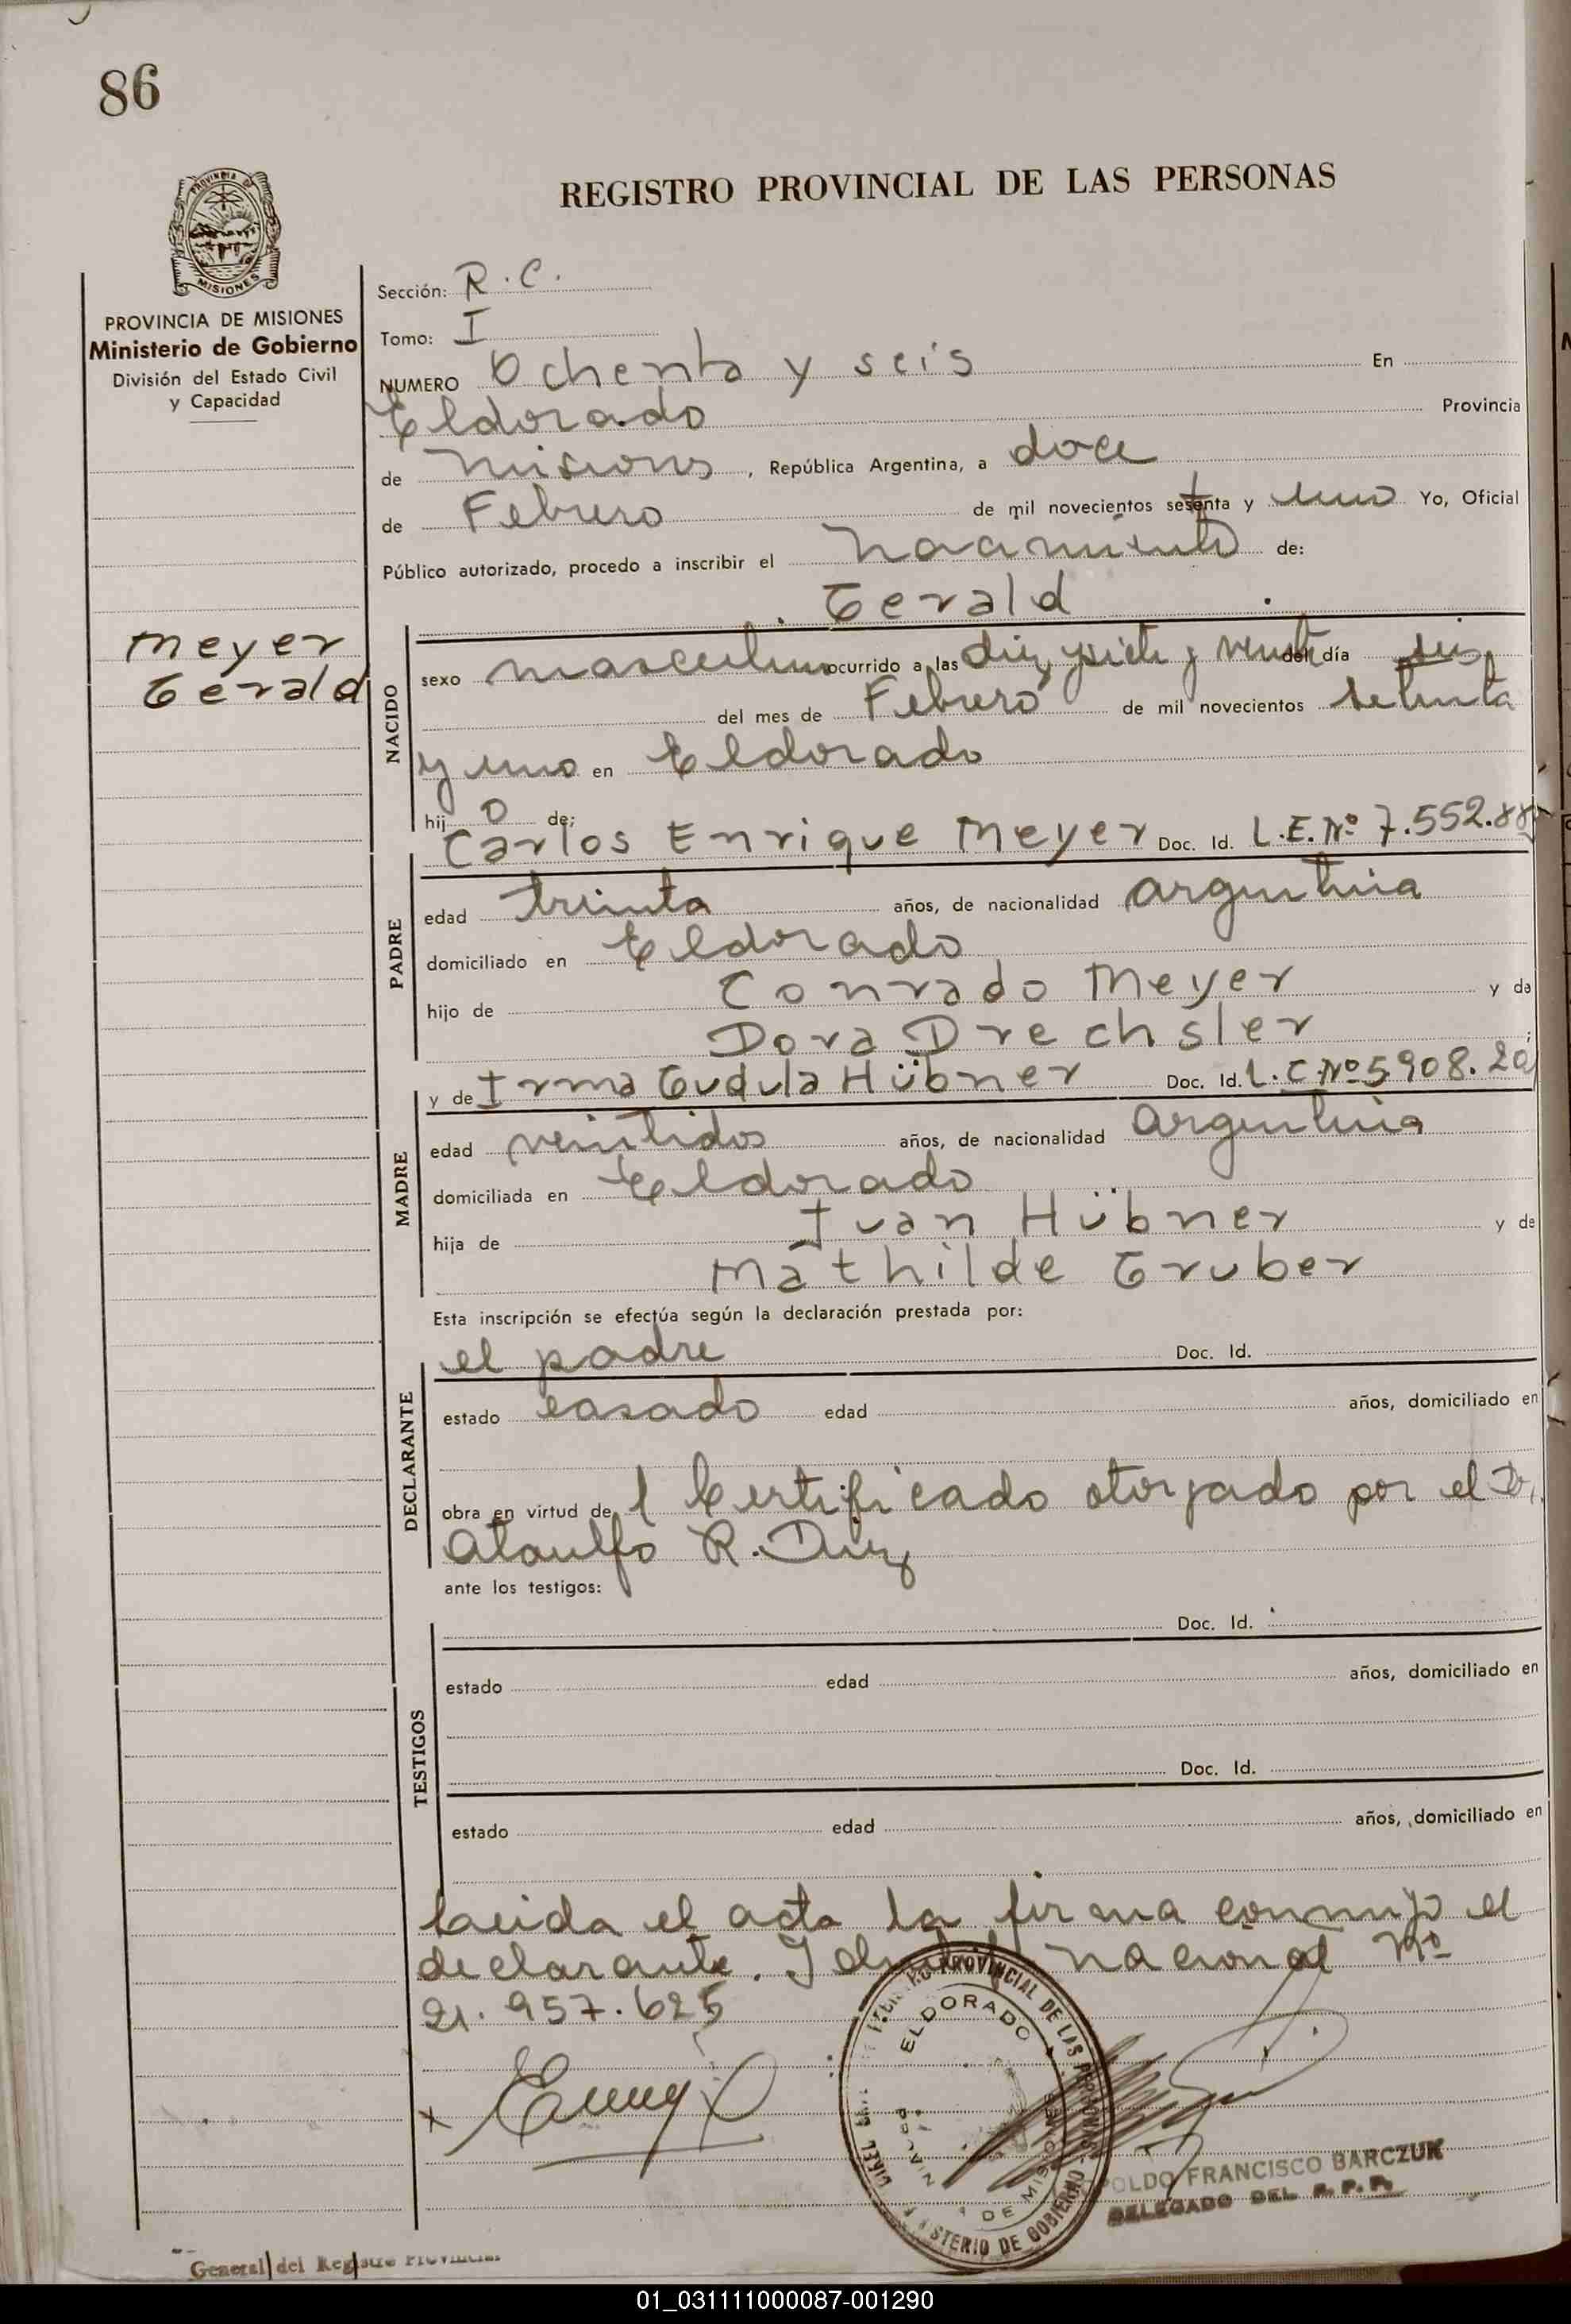 86
REGISTRO PROVINCIAL DE LAS PERSONAS
PROVINCIA DE
MISIONES
PROVINCIA DE MISIONES
Ministerio de Gobierno
División del Estado Civil
y Capacidad
Meyer
Gerald
Sección: R.C.
Tomo: I
NUMERO Ochenta y seis En
Eldorado Provincia
de Misiones, República Argentina, a doce
de Febrero de mil novecientos setenta y uno Yo, Oficial
Público autorizado, procedo a inscribir el nacimiento de:
Gerald
NACIDO
sexo masculino ocurrido a las diez y siete y veinte del día seis
del mes de Febrero de mil novecientos setenta
y uno en Eldorado
hijo de:
Carlos Enrique Meyer Doc. Id. L.E. Nº 7.552.88
PADRE
edad treinta años, de nacionalidad argentina
domiciliado en Eldorado
hijo de Conrado Meyer y de
Dora Drechsler;
y de Irma Gudula Hübner Doc. Id. L.C. Nº 5.908.20
MADRE
edad veintidos años, de nacionalidad argentina
domiciliada en Eldorado
hija de Juan Hübner y de
Mathilde Gruber
Esta inscripción se efectúa según la declaración prestada por:
el padre Doc. Id.
DECLARANTE
estado casado edad años, domiciliado en
obra en virtud del Certificado otorgado por el Dr.
Ataulfo R. Diez
ante los testigos:
Doc. Id.
TESTIGOS
estado edad años, domiciliado en
Doc. Id.
estado edad años, domiciliado en
Leida el acta la firma conmigo el
declarante. Identif. nacional Nº
21.957.625
REGISTRO PROVINCIAL DE LAS PERSONAS
ELDORADO
DE MISIONES
MINISTERIO DE GOBIERNO
POLDO FRANCISCO BARCZUK
DELEGADO DEL R.P.P.
General del Registro Provincial
01_031111000087-001290